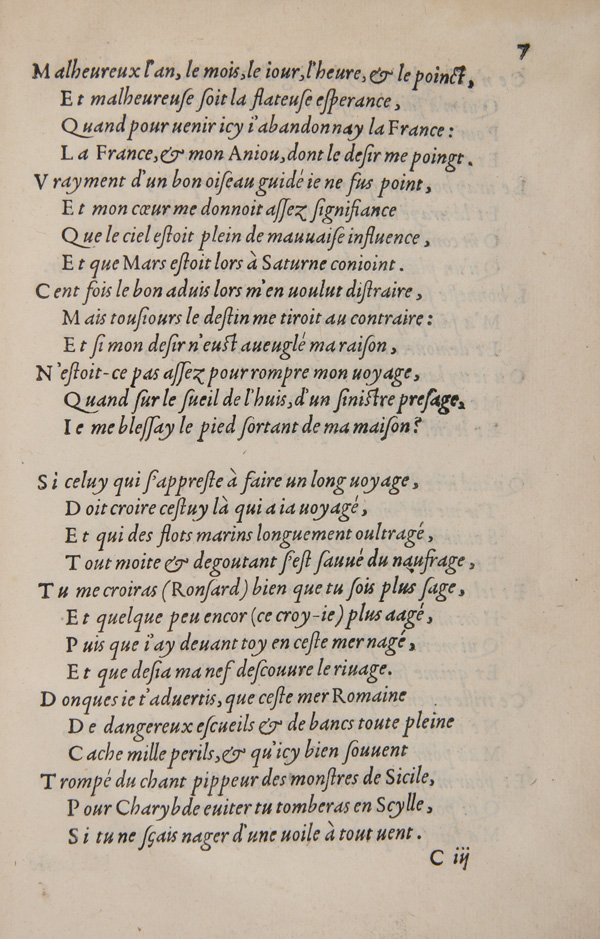 7
Malheureux l'an, le mois, le iour, l'heure, & le poinct,
Et malheureuſe ſoit la flateuſe eſperance,
Quand pour uenir icy i'abandonnay la France:
La France, & mon Aniou, dont le deſir me poingt.
Vrayment d'un bon oiſeau guidé ie ne fus point,
Et mon cœur me donnoit aſſez ſignifiance
Que le ciel eſtoit plein de mauuaiſe influence,
Et que Mars eſtoit lors à Saturne conioint.
Cent fois le bon aduis lors m'en uoulut diſtraire,
Mais touſiours le deſtin me tiroit au contraire:
Et ſi mon deſir n'euſt aueuglé ma raiſon,
N'eſtoit-ce pas aſſez pour rompre mon uoyage,
Quand ſur le ſueil de l'huis, d'un ſiniſtre preſage,
Ie me bleſſay le pied ſortant de ma maiſon?
Si celuy qui ſ'appreſte à faire un long uoyage,
Doit croire ceſtuy là qui a ia uoyagé,
Et qui des flots marins longuement oultragé,
Tout moite & degoutant ſ'eſt ſauué du naufrage,
Tu me croiras (Ronſard) bien que tu ſois plus ſage,
Et quelque peu encor (ce croy-ie) plus aagé,
Puis que i'ay deuant toy en ceſte mer nagé,
Et que deſia ma nef deſcouure le riuage.
Donques ie t'aduertis, que ceſte mer Romaine
De dangereux eſcueils & de bancs toute pleine
Cache mille perils, & qu'icy bien ſouuent
Trompé du chant pippeur des monſtres de Sicile,
Pour Charybde euiter tu tomberas en Scylle,
Si tu ne ſçais nager d'une uoile à tout uent.
C iij